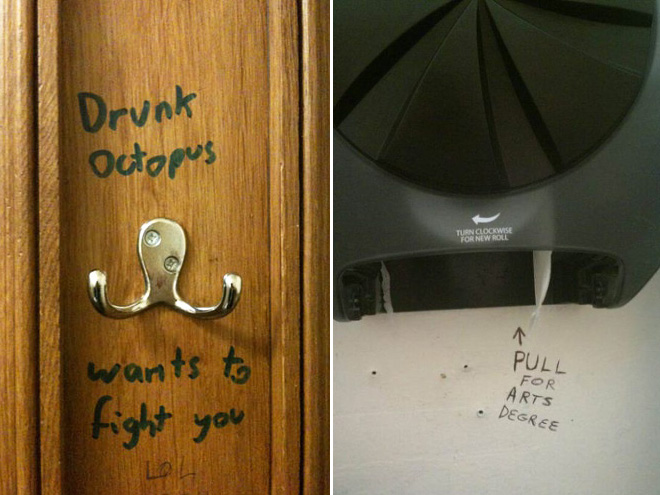 Drunk
Octopus
wants to
fight you
LOL
TURN CLOCKWISE
FOR NEW ROLL
↑
PULL
FOR
ARTS
DEGREE